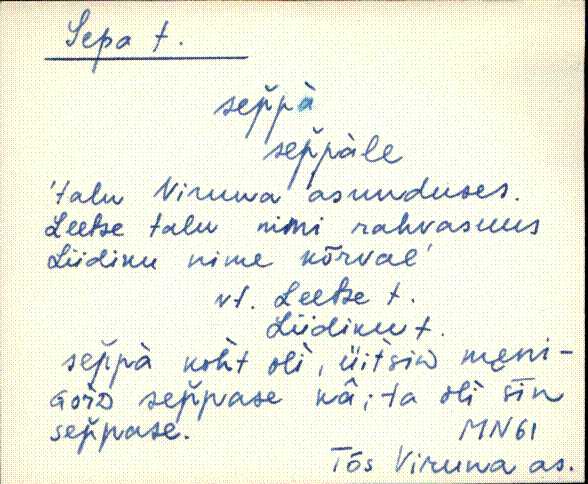 Sepa t.
sep̆pà
sep̆pàle
'talu Viruna asunduses.
Leetse talu nimi rahvasuus
Liidiku nime kõrval'
vt. Leetse t.
Liidiku t.
sep̆pà koh̀t olì, üit̀sin męni-
Gord sep̆pase kà; ta olì sīn
sep̆pase.
MN61
Tõs Viruna as.